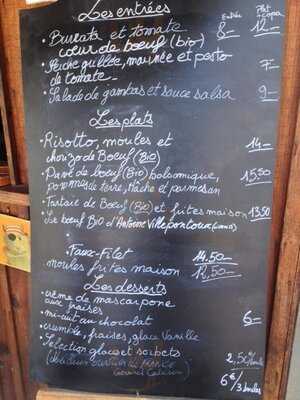 Les entrées
Entrée
Plat
+ copa
• Burrata et tomate 8- 12-
cœur de bœuf (bio)
• Pêche grillée, marinée et pesto 7-
de tomate
• Salade de gambas et sauce salsa 9-
Les plats
• Risotto, moules et 14-
chorizo de Bœuf (Bio)
• Pavé de bœuf (Bio) balsamique, 15,50
pommes de terre, mâche et parmesan
• Tartare de Bœuf (Bio) et frites maison 13,50
Le bœuf BIO d'Antoine Villepontoux
Faux-Filet 14.50
moules frites maison 12,50
Les desserts
• crème de mascarpone
aux fraises
• mi-cuit au chocolat 6-
• crumble, fraises, glace Vanille
• Sélection glaces et sorbets
(Meilleur ouvrier de France
6€/
3 boules